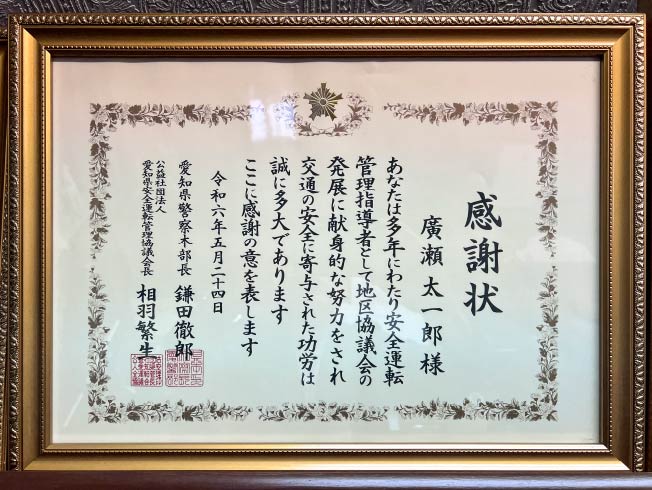 感謝状
廣瀬 太一郎 様
あなたは多年にわたり安全運転
管理指導者として地区協議会の
発展に献身的な努力をされ
交通の安全に寄与された功労は
誠に多大であります
ここに感謝の意を表します
令和六年五月二十四日
愛知県警察本部長 鎌田徹郎
公益社団法人
愛知県安全運転管理協議会長 相羽繁生